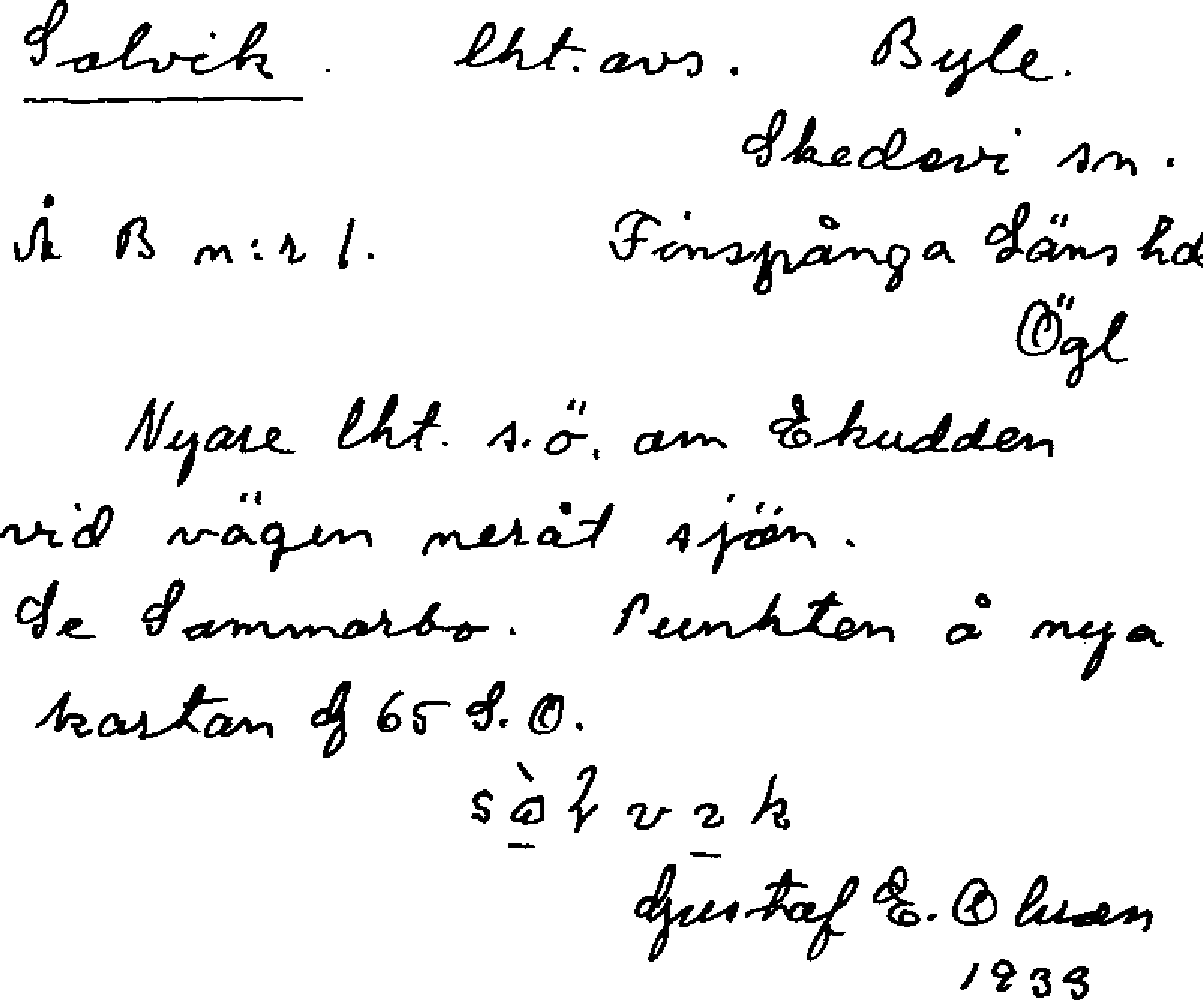 Solvik. lht. avs. Byle.
Skedevi sn.
Åk B n:r 1. Finspånga Läns hd
Ögl
Nyare lht. s.ö. om Ekudden
vid vägen neråt sjön.
Se Sommarbo. Punkten å nya
kartan G 65 S.O.
Gustaf E. Olsson
1933